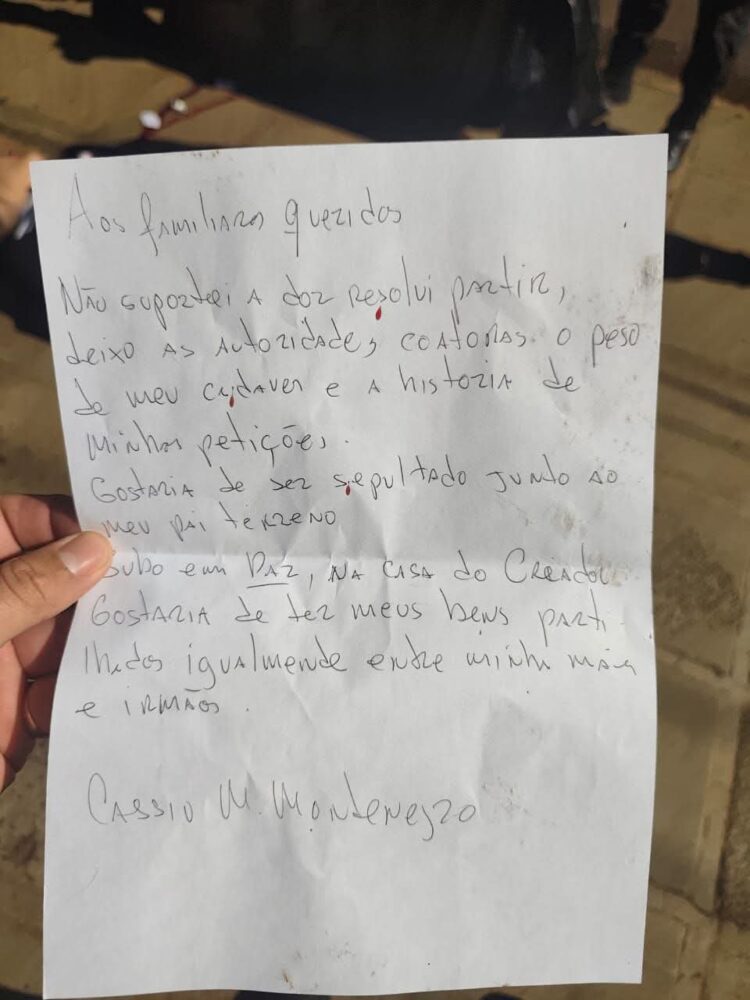 Aos familiares queridos
Não suportei a dor resolvi partir,
deixo as autoridades coatoras o peso
de meu cadaver e a historia de
minhas petições.
Gostaria de ser sepultado junto ao
meu pai terreno
Subo em Paz, na casa do Creador
Gostaria de ter meus bens parti
lhados igualmente entre minha mãe
e irmãos.
Cassio M. Montenegro